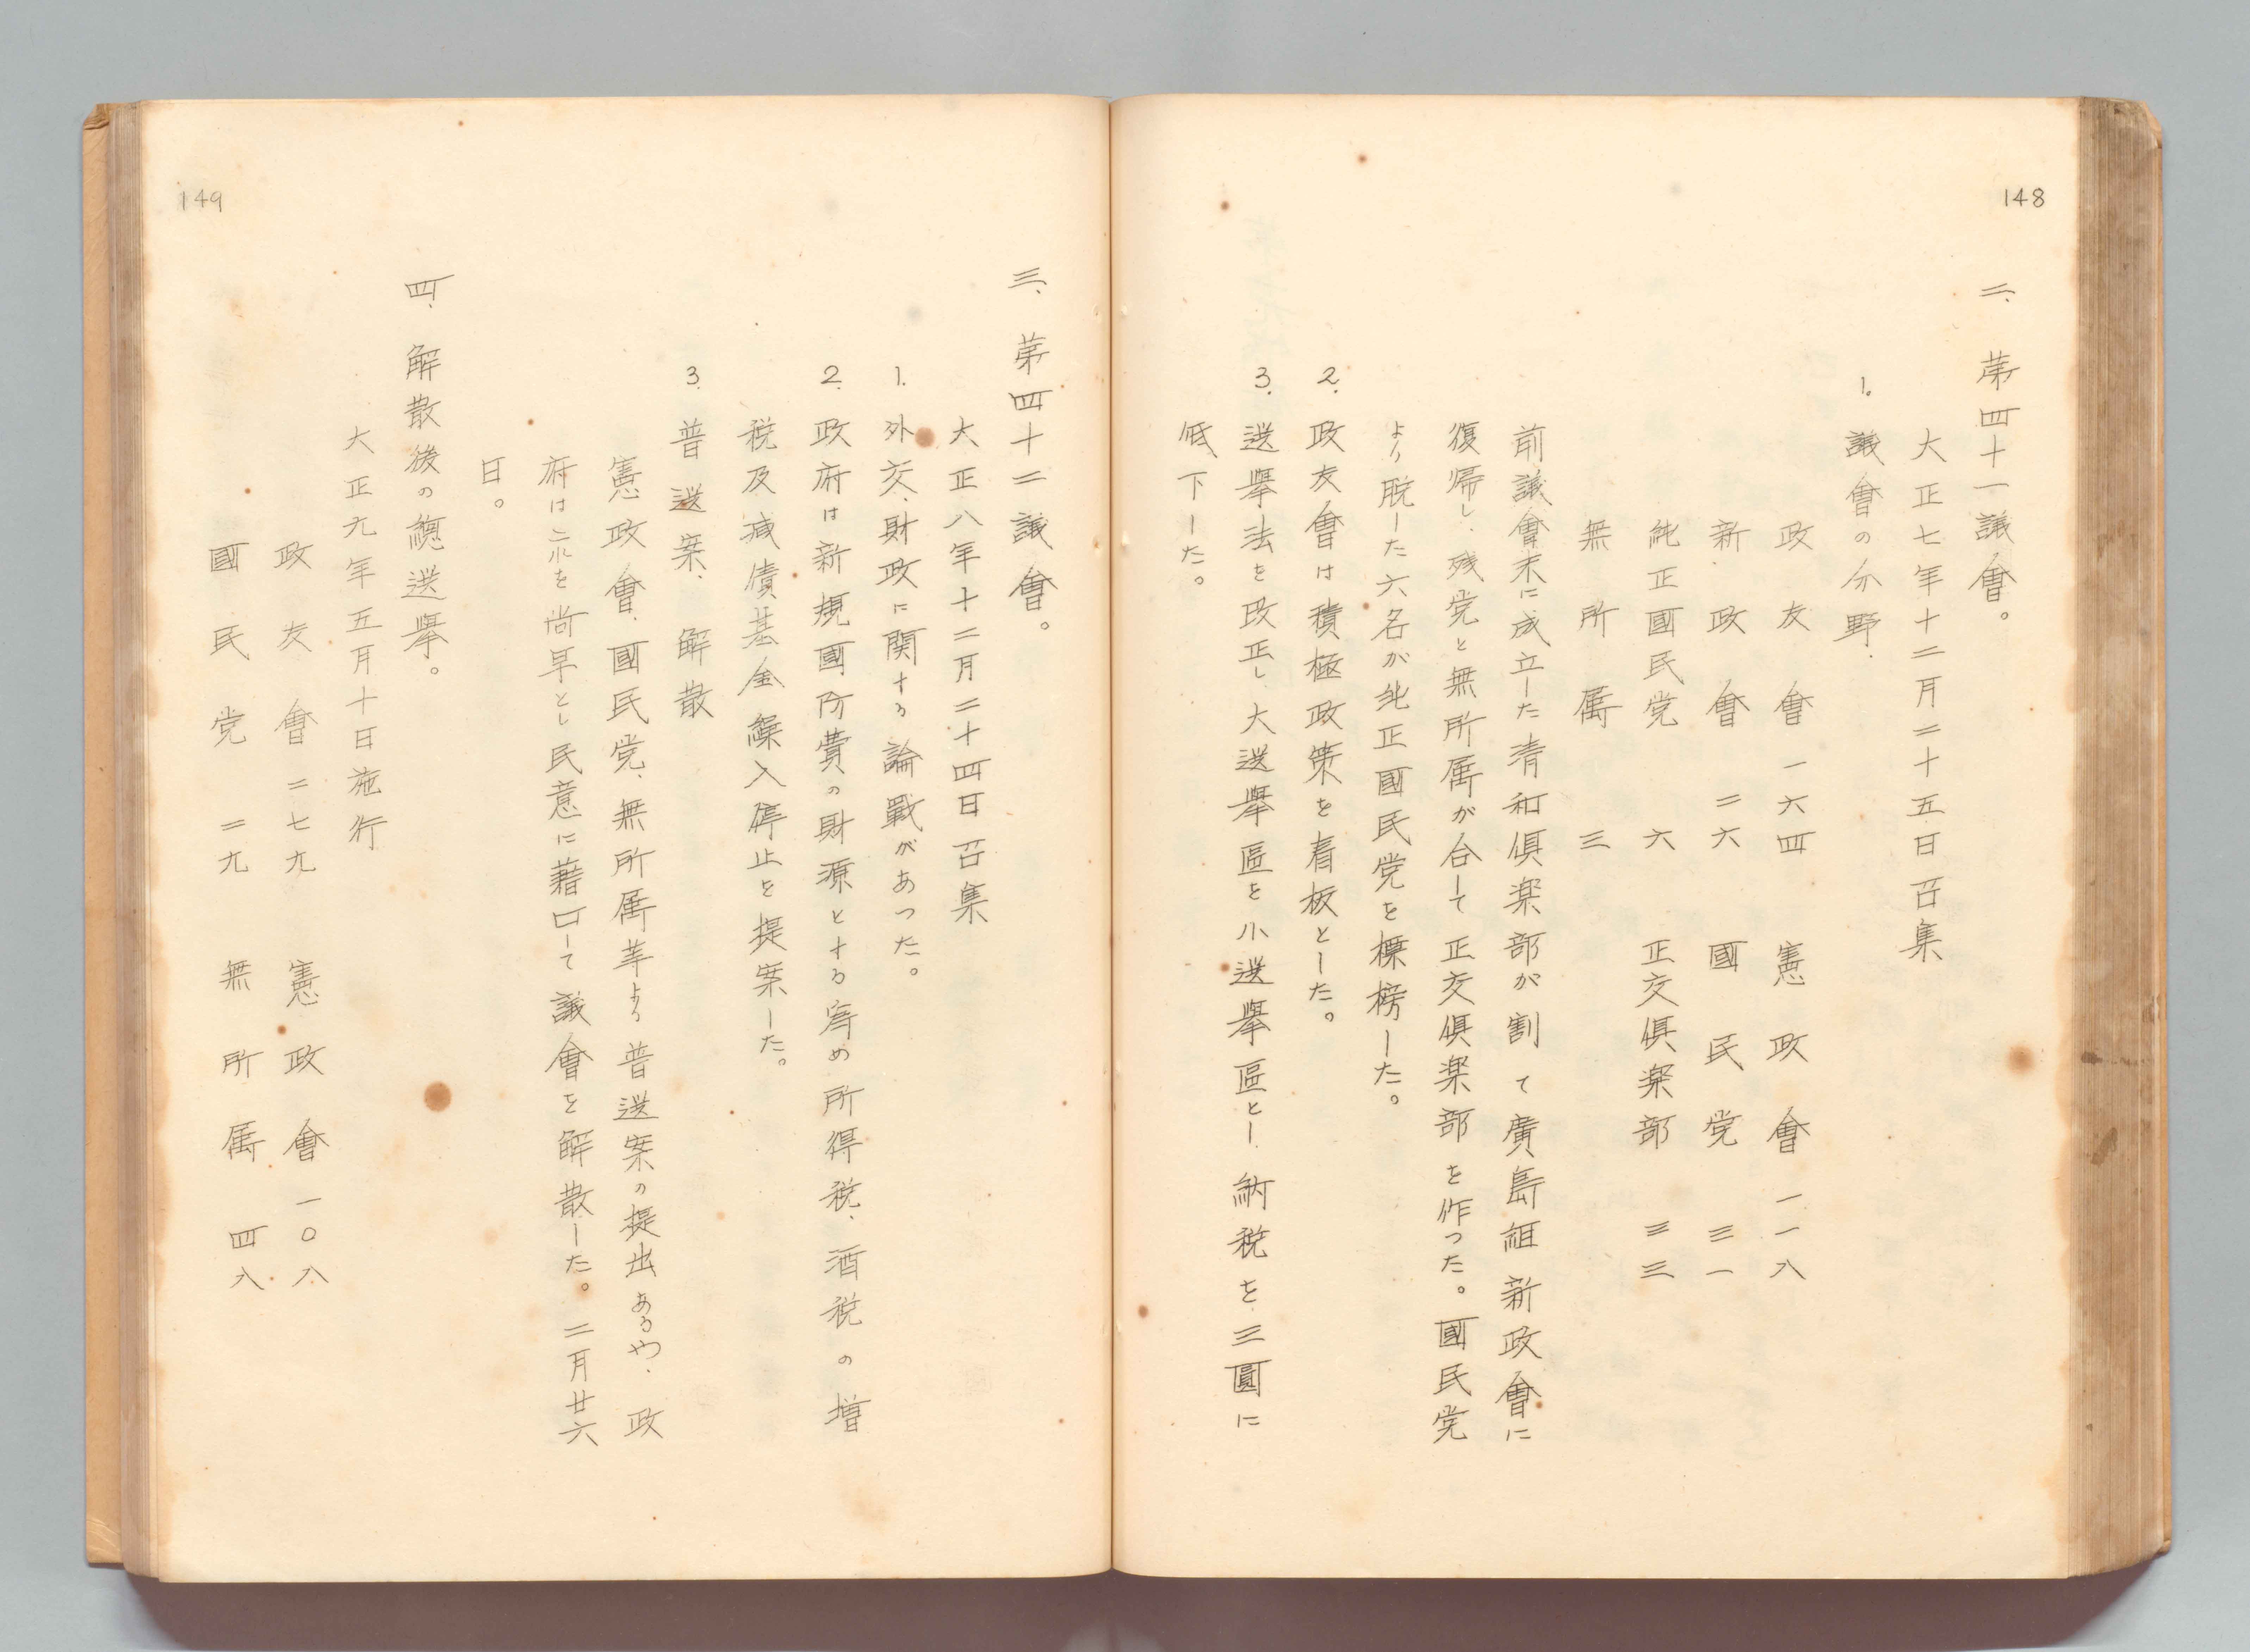 148
二、第四十一議會。
大正七年十二月二十五日召集
1. 議會の分野.
政友會 一六四 憲政會 一一八
新政會 二六 國民党 三一
純正國民党 六 正交俱楽部 三三
無所属 三
前議會末に成立した清和俱楽部が割て廣島組新政會に
復帰し、残党と無所属が合して正交俱楽部を作った。國民党
より脱した六名が純正國民党を標榜した。
2. 政友會は積極政策を看板とした。
3. 選擧法を改正し、大選擧區を小選擧區とし、納税を三圓に
低下した。
149
三、第四十二議會。
大正八年十二月二十四日召集
1. 外交、財政に関する論戰があつた。
2. 政府は新規國防費の財源とする為め所得税、酒税の増
税及減債基金繰入停止を提案した。
3. 普選案、解散
憲政會、國民党、無所属等より普選案の提出あるや、政
府はこれを尚早とし民意に藉口して議會を解散した。二月廿六
日。
四、解散後の總選擧。
大正九年五月十日施行
政友會 二七九 憲政會 一〇八
國民党 二九 無所属 四八